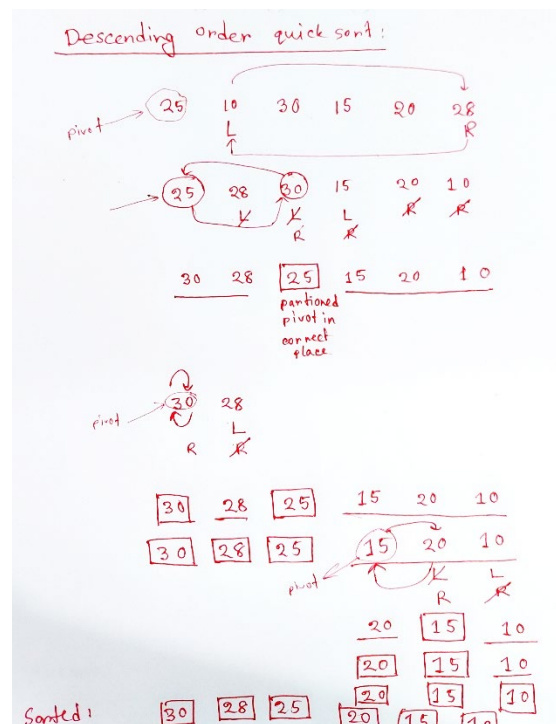 Descending order quick sort:
25 10 30 15 20 28
pivot
L R
25 28 30 15 20 10
L L L R R
R R
30 28 25 15 20 10
partioned
pivot in
correct
place
30 28
pivot
L
R R
30 28 25 15 20 10
30 28 25 15 20 10
pivot
L L
R R
20 15 10
20 15 10
20 15 10
Sorted: 30 28 25 20 15 10